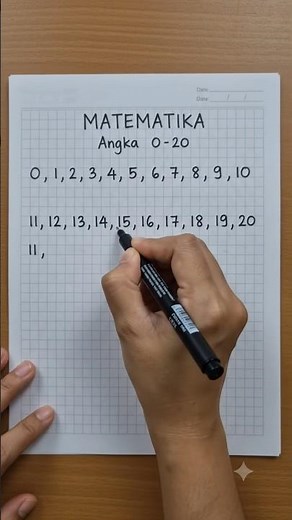 Date
Date / /
MATEMATIKA
Angka 0-20
0, 1, 2, 3, 4, 5, 6, 7, 8, 9, 10
11, 12, 13, 14, 15, 16, 17, 18, 19, 20
11,